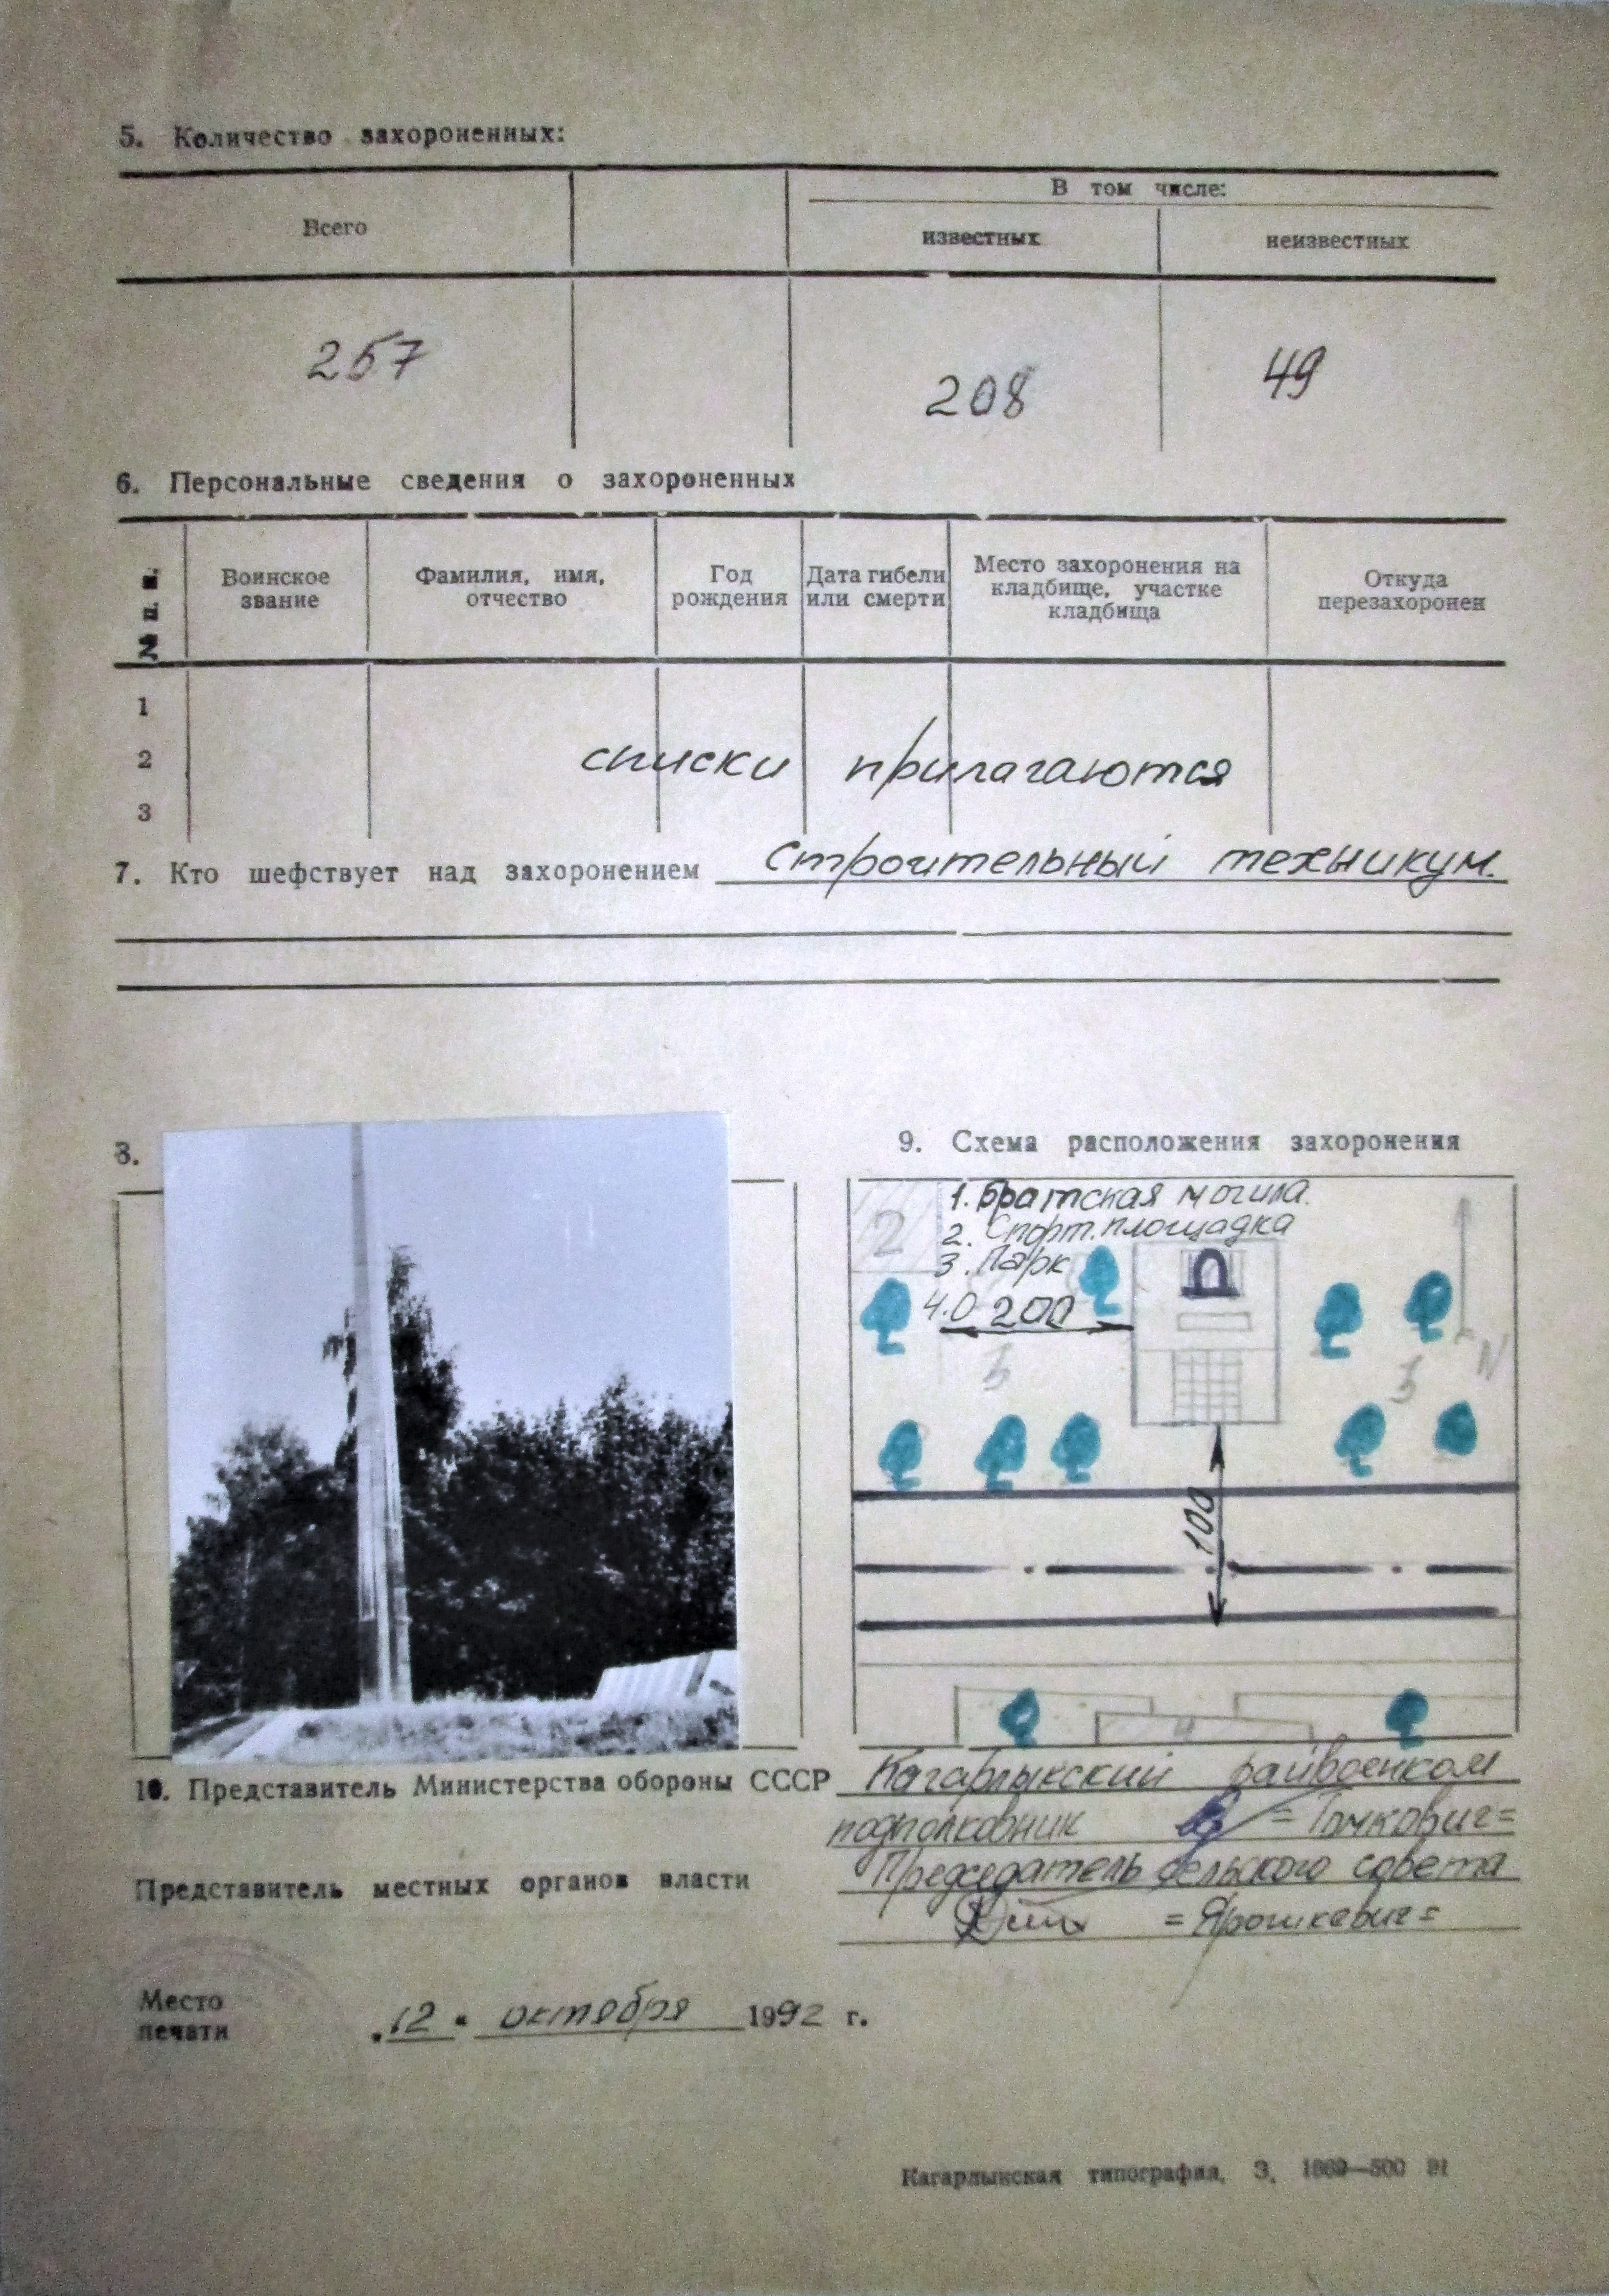 5. Количество захороненных:
Всего
В том числе:
известных
неизвестных
257
208
49
6. Персональные сведения о захороненных
№ п. п.
Воинское звание
Фамилия, имя, отчество
Год рождения
Дата гибели или смерти
Место захоронения на кладбище, участке кладбища
Откуда перезахоронен
1
2
3
списки прилагаются
7. Кто шефствует над захоронением Строительный техникум.
8.
9. Схема расположения захоронения
1. Братская могила.
2. Спорт. площадка
3. Парк
4.0 200
2
3
3
N
100
4
10. Представитель Министерства обороны СССР Кагарлыкский райвоенком
подполковник = Томкович =
Представитель местных органов власти Председатель сельского совета
= Ярошкевич =
Место
печати
12 октября 1992 г.
Кагарлыкская типография. З. 1869—500 91